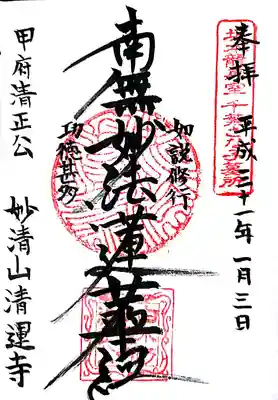 奉拝 平成三十一年一月三日
如説修行
南無妙法蓮華経
功徳甚多
甲府清正公
妙清山清運寺